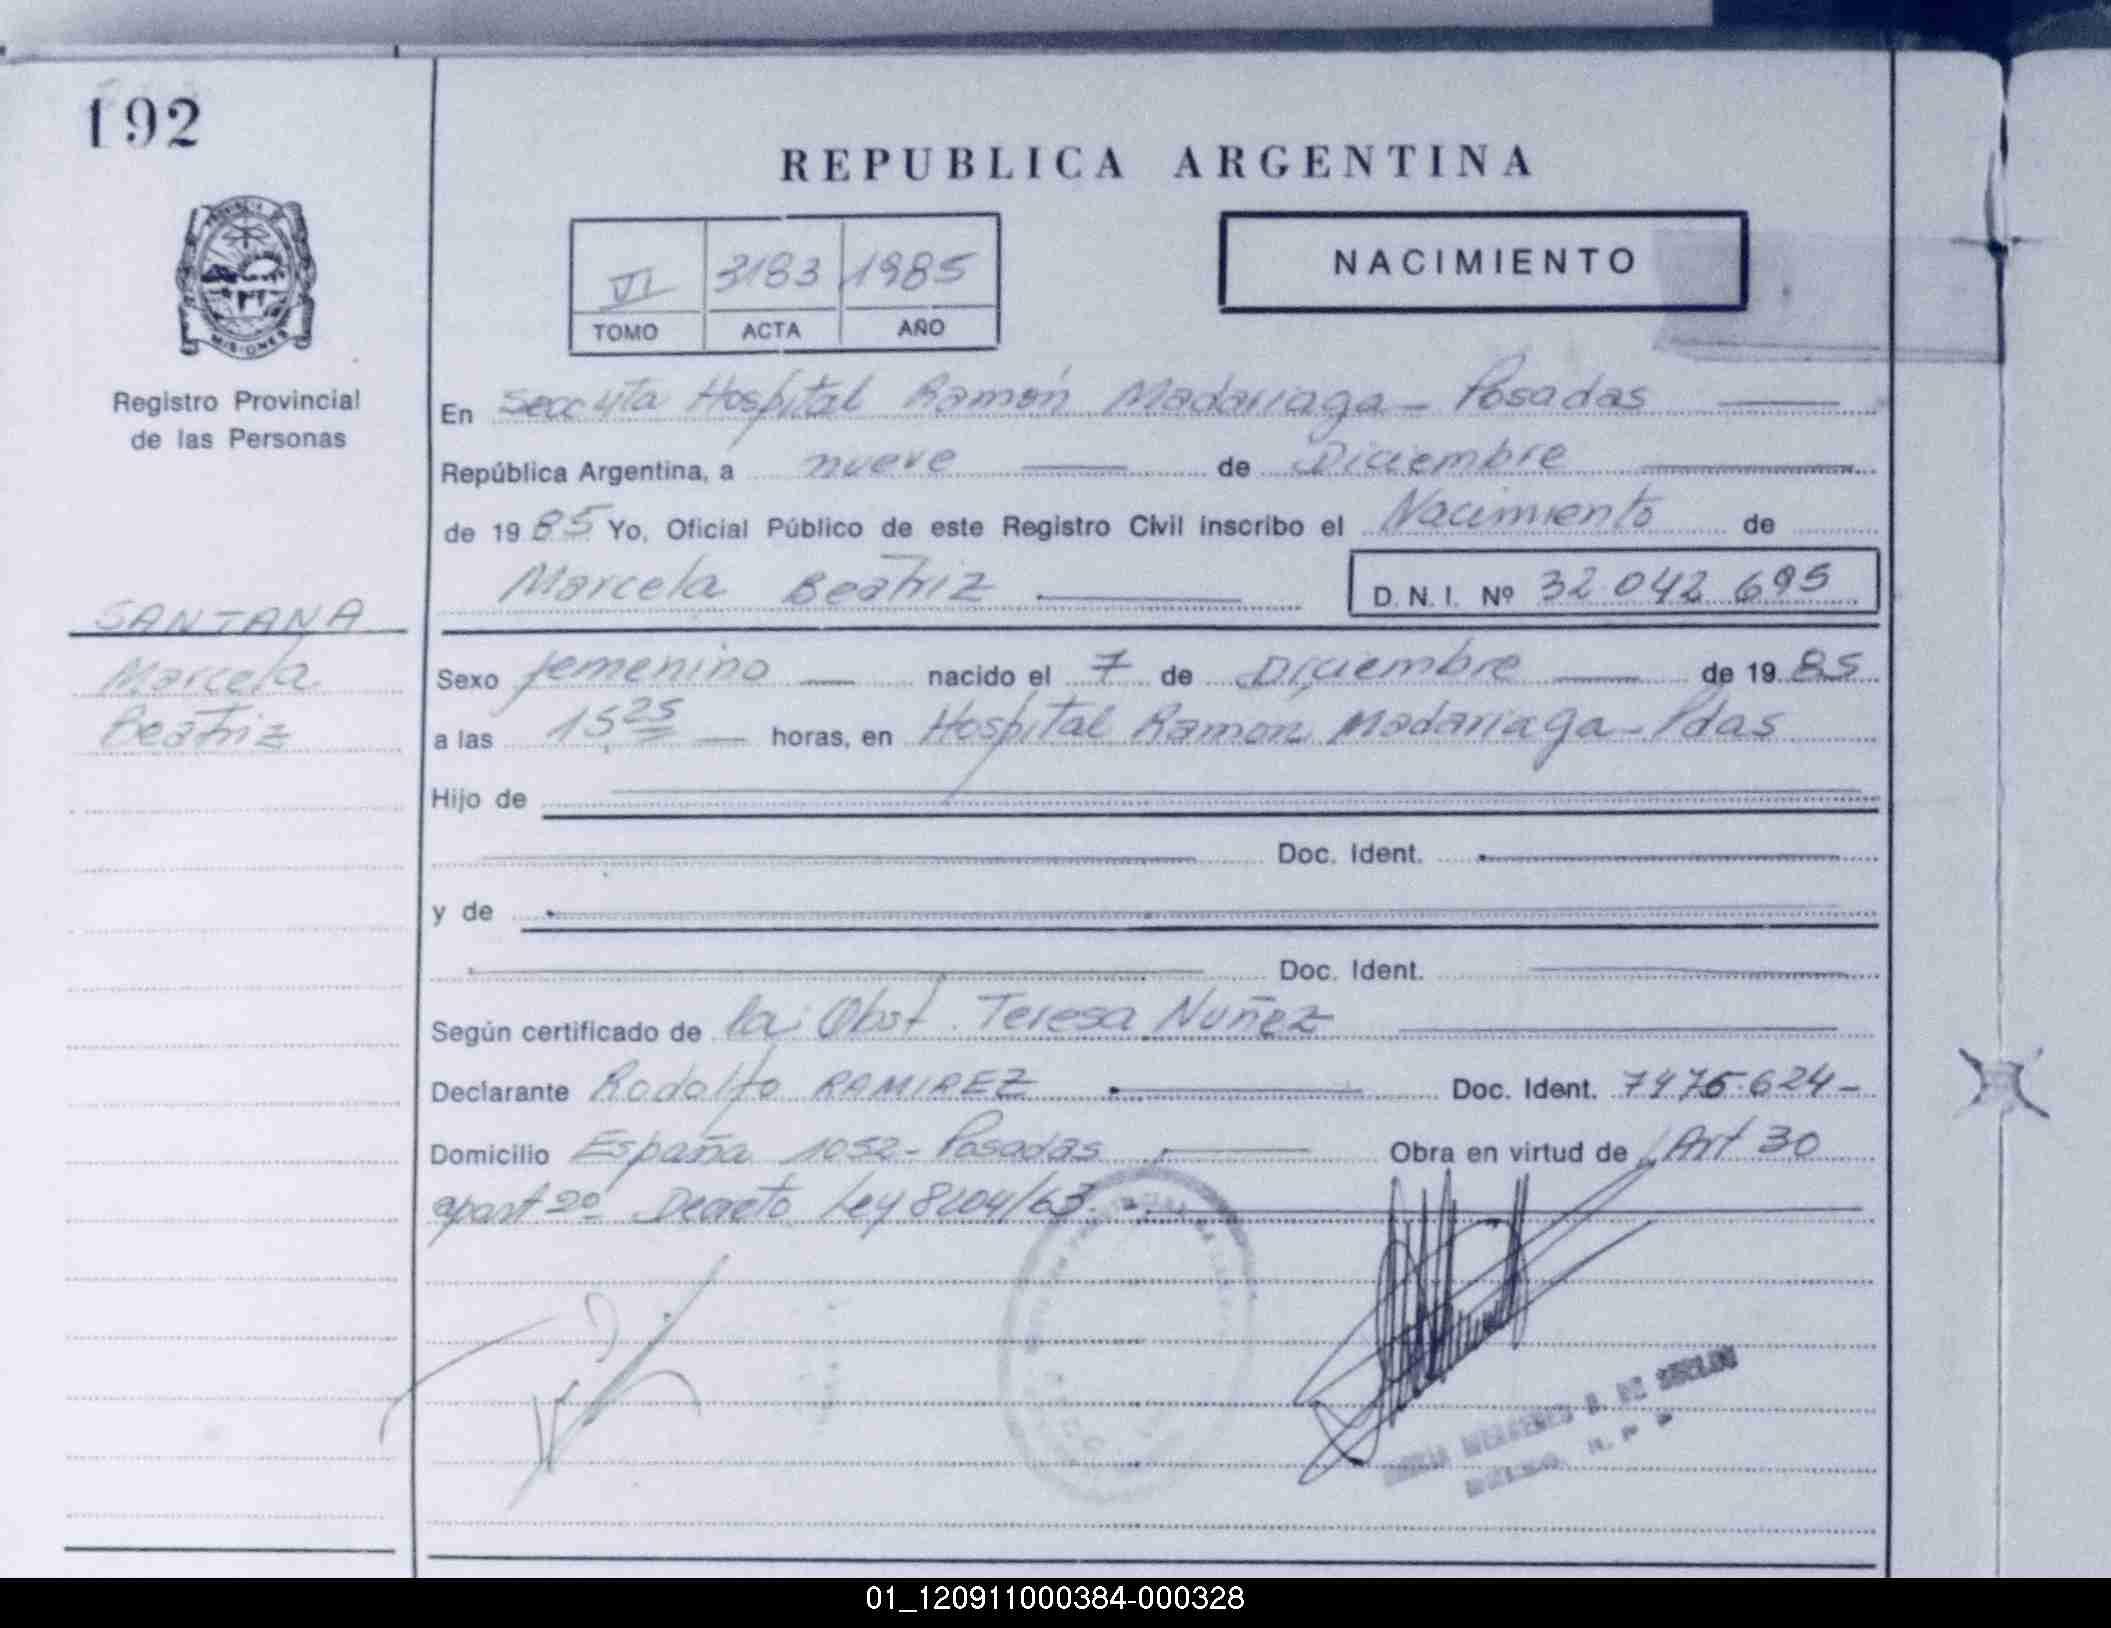 192
REPUBLICA ARGENTINA
PROVINCIA DE
MISIONES
Registro Provincial
de las Personas
NACIMIENTO
VI 3183 1985
TOMO ACTA AÑO
En Secc 4ta Hospital Ramón Madariaga - Posadas
República Argentina, a nueve de Diciembre
de 1985 Yo, Oficial Público de este Registro Civil inscribo el Nacimiento de
Marcela Beatriz D. N. I. Nº 32.042.695
SANTANA
Marcela
Beatriz
Sexo femenino nacido el 7 de Diciembre de 1985
a las 15 25 horas, en Hospital Ramón Madariaga - Pdas
Hijo de
Doc. Ident.
y de
Doc. Ident.
Según certificado de la Obst. Teresa Nuñez
Declarante Rodolfo RAMIREZ Doc. Ident. 7476.624-
Domicilio España 1052 - Posadas Obra en virtud de Art 30
apart 2º Decreto Ley 8204/63.
R. P. P.
01_120911000384-000328